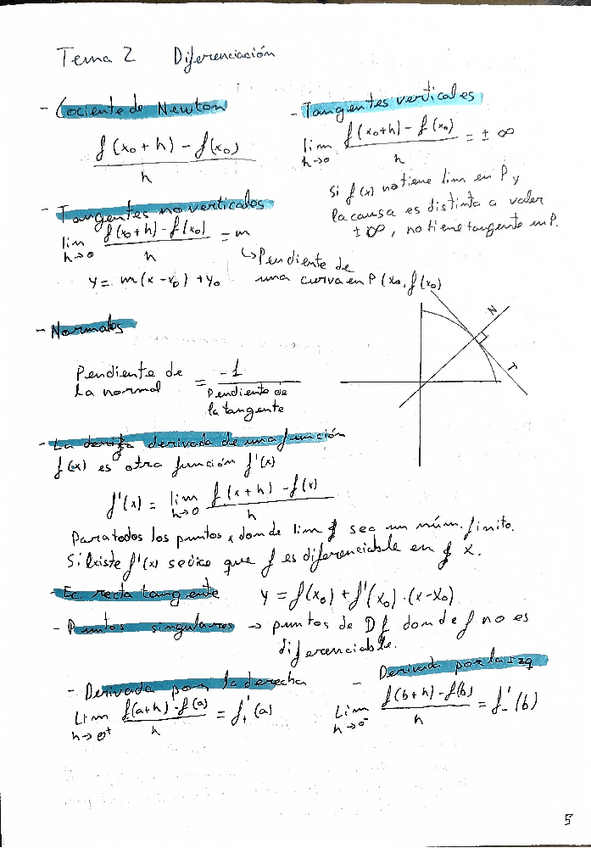 Tema 2 Diferenciación
- Cociente de Newton
f(x₀+h) - f(x₀)
h
- Tangentes verticales
lim f(x₀+h) - f(x₀) = ± ∞
h→0 h
Si f(x) no tiene lim en P y
la causa es distinta a valer
±∞, no tiene tangente en P.
- Tangentes no verticales
lim f(x₀+h) - f(x₀) = m
h→0 h
↳ Pendiente de
una curva en P (x₀, f(x₀)
y = m(x-x₀) + y₀
- Normales
N
T
Pendiente de
la normal
= -1
Pendiente de
la tangente
- La derivada de una función
f(x) es otra función f'(x)
f'(x) = lim f(x+h) - f(x)
h→0 h
Para todos los puntos x donde lim f sea un núm. finito.
Si Existe f'(x) se dice que f es diferenciable en x.
- Ec. recta tangente y = f(x₀) + f'(x₀)·(x-x₀)
- Puntos singulares → puntos de Df donde f no es
diferenciable.
- Derivada por la derecha
Lim f(a+h) - f(a) = f'₊(a)
h→0⁺ h
- Derivada por la izq
Lim f(b+h) - f(b) = f'₋(b)
h→0⁻ h
5